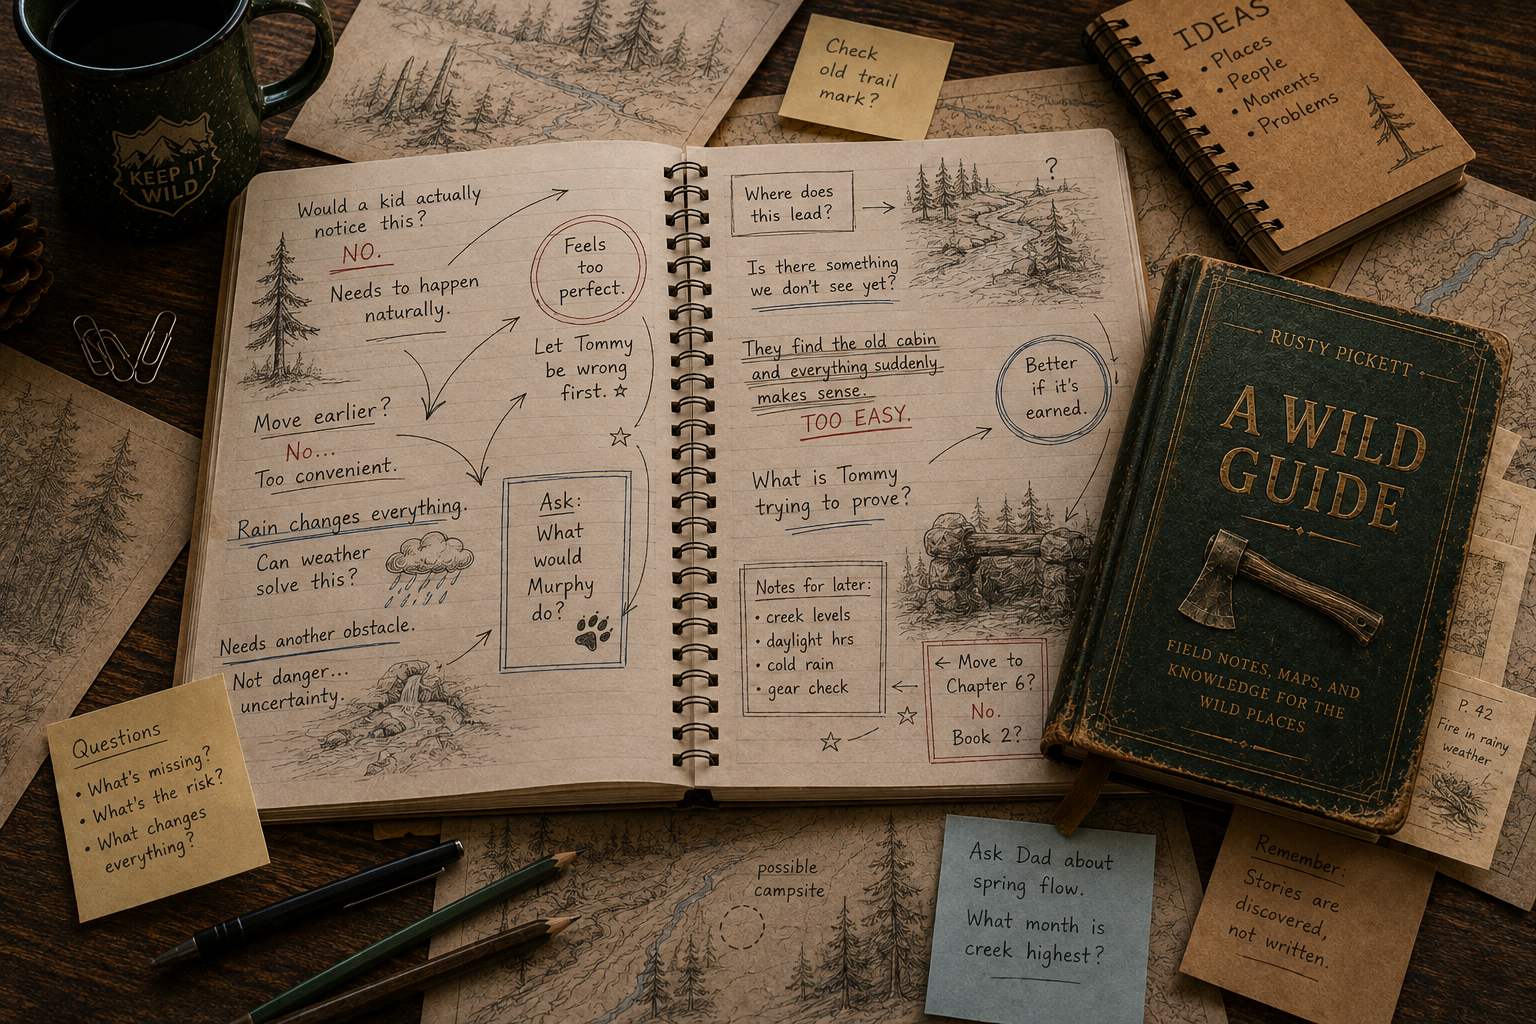 KEEP IT
WILD
Check
old trail
mark?
IDEAS
• Places
• People
• Moments
• Problems
Would a kid actually
notice this?
NO.
Needs to happen
naturally.
Feels
too
perfect.
Let Tommy
be wrong
first. ☆
Move earlier?
No...
Too convenient.
Rain changes everything.
Can weather
solve this?
Ask:
What
would
Murphy
do?
Needs another obstacle.
Not danger...
uncertainty.
Where does
this lead?
?
Is there something
we don't see yet?
They find the old cabin
and everything suddenly
makes sense.
TOO EASY.
Better
if it's
earned.
What is Tommy
trying to prove?
Notes for later:
• creek levels
• daylight hrs
• cold rain
• gear check
← Move to
Chapter 6?
No.
Book 2?
RUSTY PICKETT
A WILD
GUIDE
FIELD NOTES, MAPS, AND
KNOWLEDGE FOR THE
WILD PLACES
P. 42
Fire in rainy
weather
Questions
• What's missing?
• What's the risk?
• What changes
everything?
possible
campsite
Ask Dad about
spring flow.
What month is
creek highest?
Remember:
Stories are
discovered,
not written.